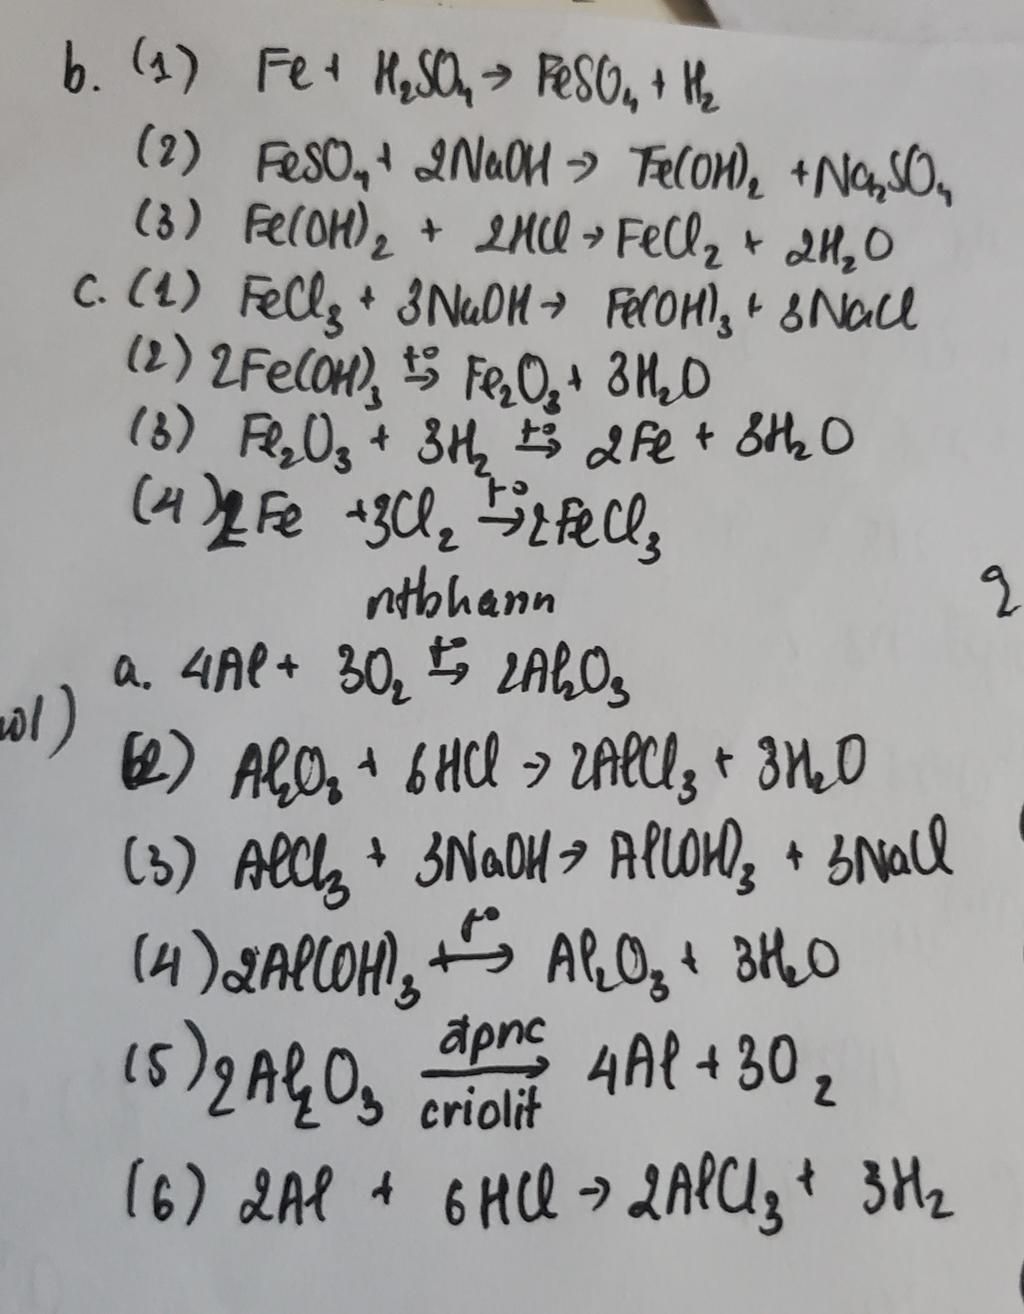 b. (1) Fe + H₂SO₄ → FeSO₄ + H₂
(2) FeSO₄ + 2NaOH → Fe(OH)₂ + Na₂SO₄
(3) Fe(OH)₂ + 2HCl → FeCl₂ + 2H₂O
c. (1) FeCl₃ + 3NaOH → Fe(OH)₃ + 3NaCl
(2) 2Fe(OH)₃ t°→ Fe₂O₃ + 3H₂O
(3) Fe₂O₃ + 3H₂ t°→ 2Fe + 3H₂O
(4) 2Fe + 3Cl₂ t°→ 2FeCl₃
ntbhann
2
a. 4Al + 3O₂ t°→ 2Al₂O₃
ol)
(2) Al₂O₃ + 6HCl → 2AlCl₃ + 3H₂O
(3) AlCl₃ + 3NaOH → Al(OH)₃ + 3NaCl
(4) 2Al(OH)₃ t°→ Al₂O₃ + 3H₂O
(5) 2Al₂O₃ đpnc→ criolit 4Al + 3O₂
(6) 2Al + 6HCl → 2AlCl₃ + 3H₂